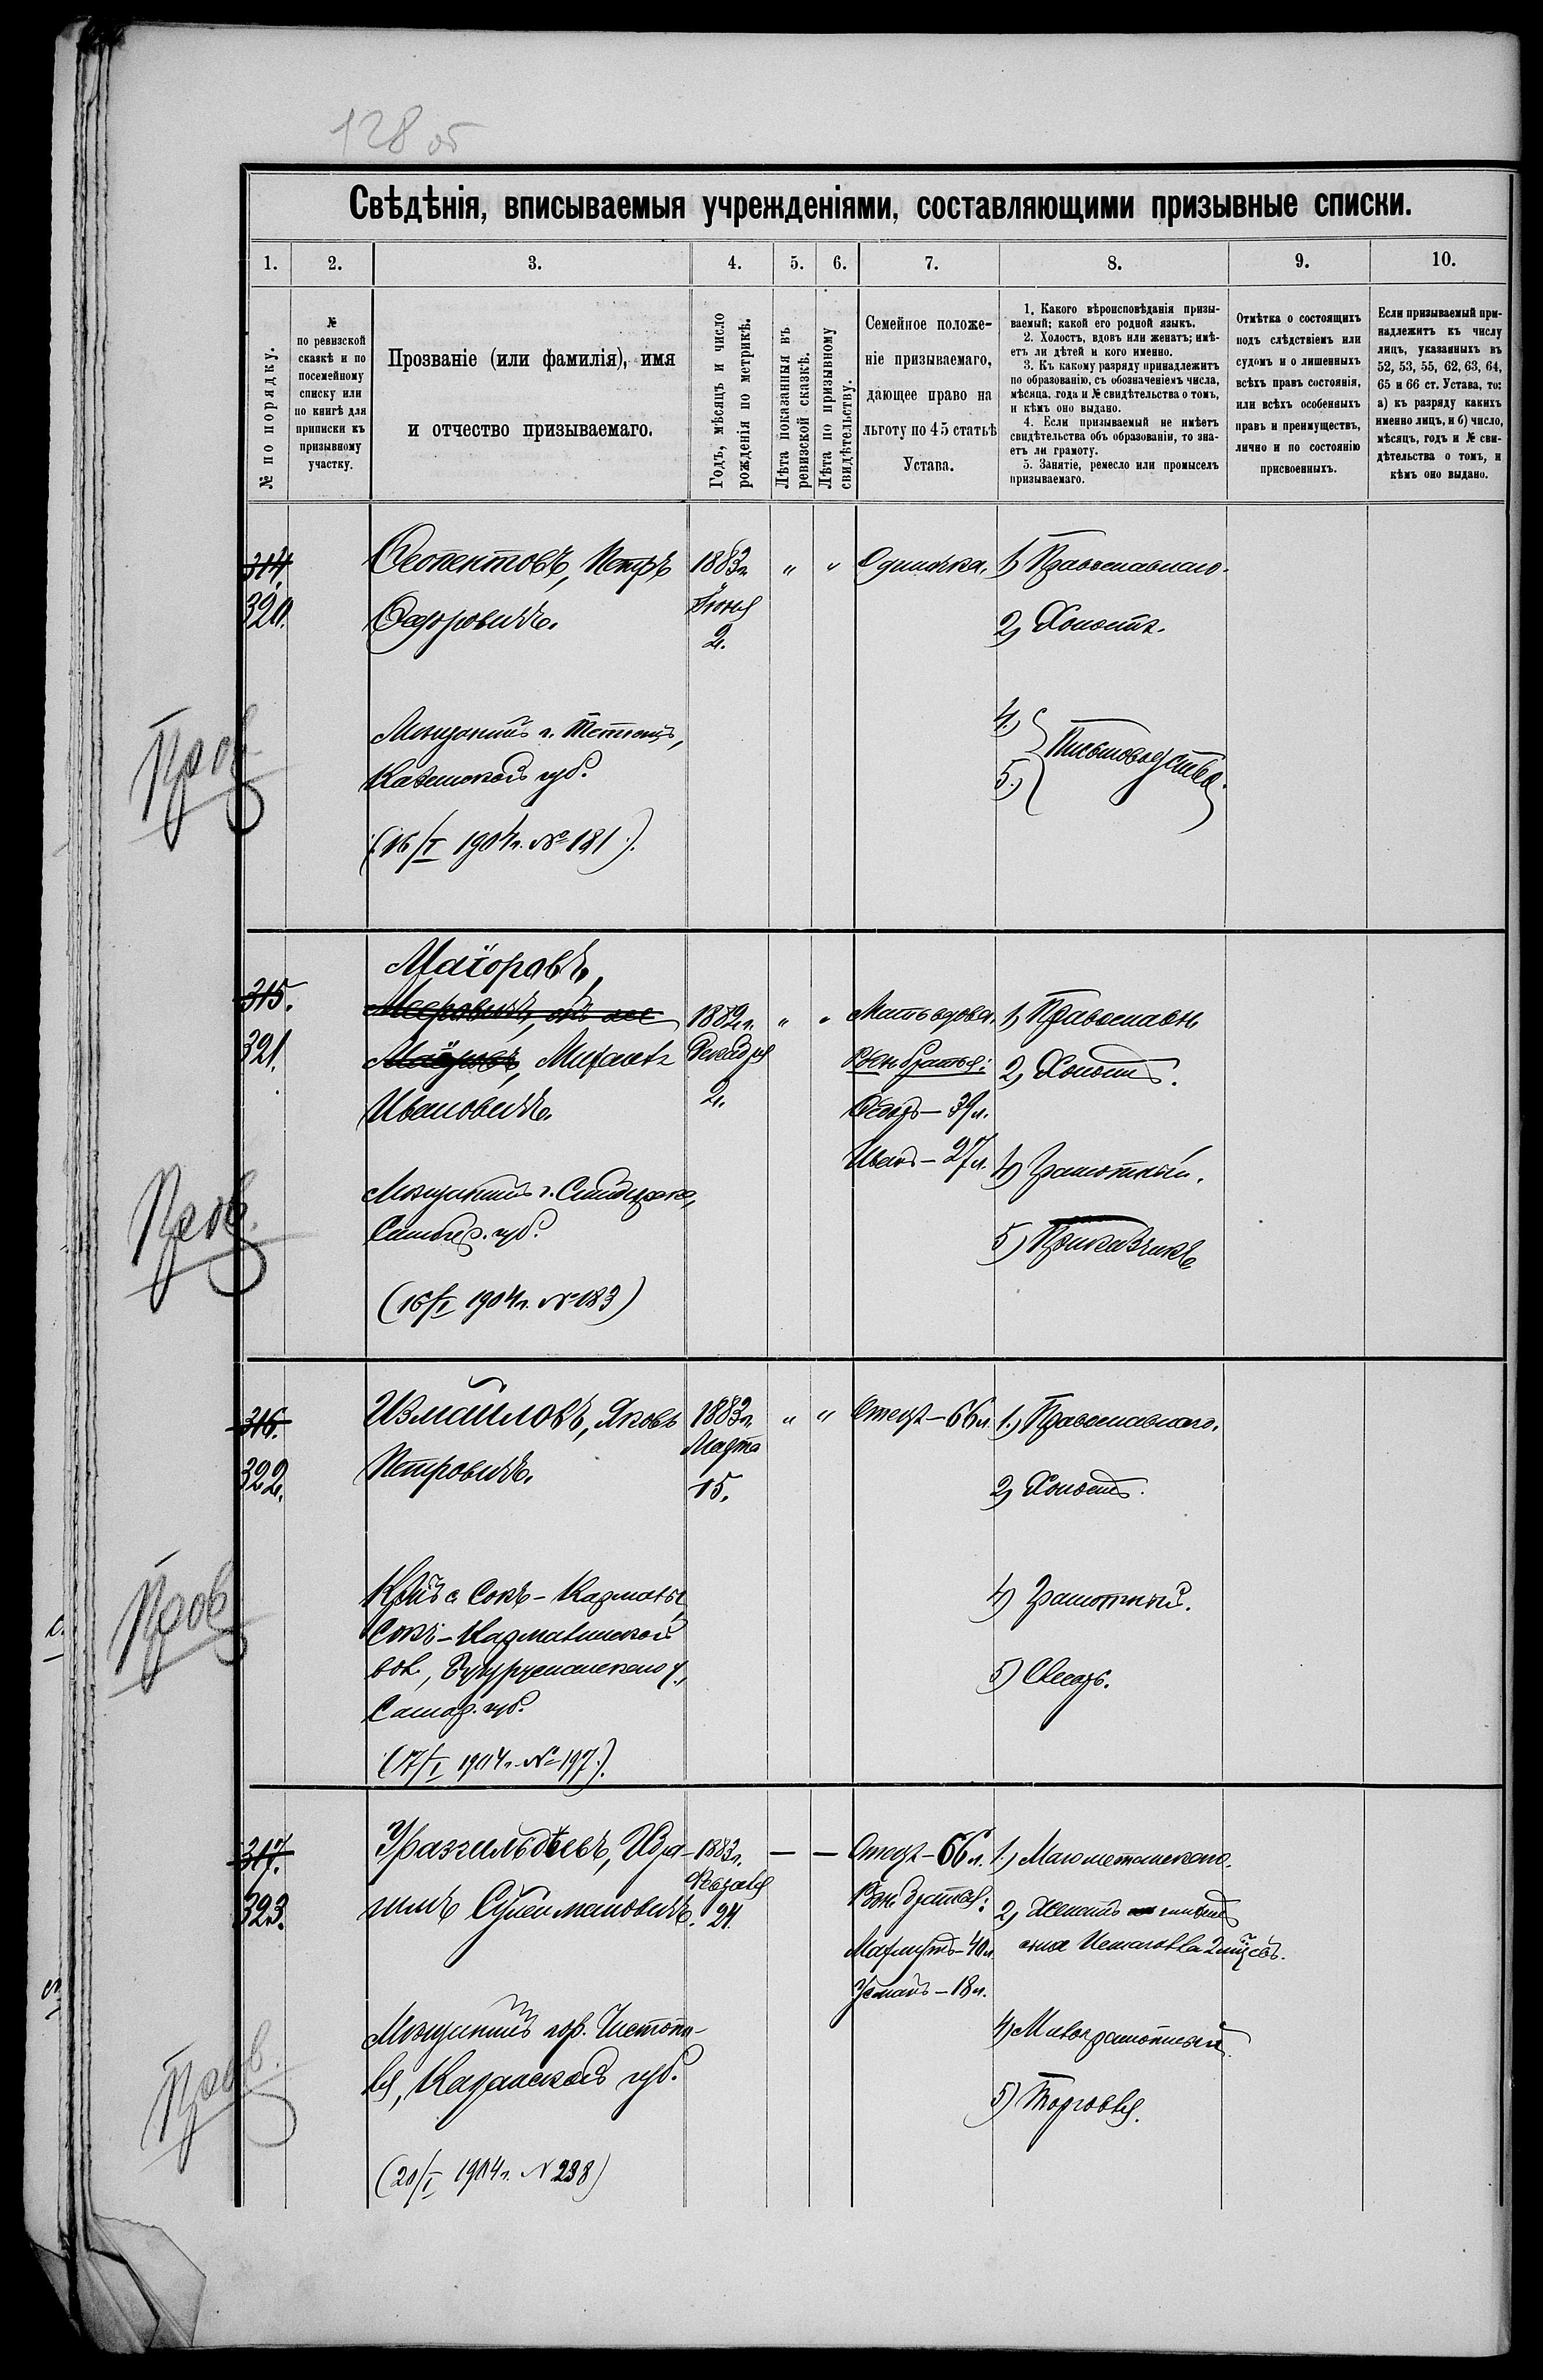 128 об
Свѣдѣнія, вписываемыя учрежденіями, составляющими призывные списки.
1. 2. 3. 4. 5. 6. 7. 8. 9. 10.
№ по порядку.
№
по ревизской
сказкѣ и по
посемейному
списку или
по книгѣ для
приписки къ
призывному
участку.
Прозваніе (или фамилія), имя
и отчество призываемаго.
Годъ, мѣсяцъ и число
рожденія по метрикѣ.
Лѣта показанныя въ
ревизской сказкѣ.
Лѣта по призывному
свидѣтельству.
Семейное положе-
ніе призываемаго,
дающее право на
льготу по 45 статьѣ
Устава.
1. Какого вѣроисповѣданія призы-
ваемый; какой его родной языкъ.
2. Холостъ, вдовъ или женатъ; имѣ-
етъ ли дѣтей и кого именно.
3. Къ какому разряду принадлежитъ
по образованію, съ обозначеніемъ числа,
мѣсяца, года и № свидѣтельства о томъ,
и кѣмъ оно выдано.
4. Если призываемый не имѣетъ
свидѣтельства объ образованіи, то зна-
етъ ли грамоту.
5. Занятіе, ремесло или промыселъ
призываемаго.
Отмѣтка о состоящихъ
подъ слѣдствіемъ или
судомъ и о лишенныхъ
всѣхъ правъ состоянія,
или всѣхъ особенныхъ
правъ и преимуществъ,
лично и по состоянію
присвоенныхъ.
Если призываемый при-
надлежитъ къ числу
лицъ, указанныхъ въ
52, 53, 55, 62, 63, 64,
65 и 66 ст. Устава, то:
а) къ разряду какихъ
именно лицъ, и б) число,
мѣсяцъ, годъ и № сви-
дѣтельства о томъ, и
кѣмъ оно выдано.
314.
320.
Пров.
Феопентовъ, Петръ
Федоровичъ.
Мѣщанинъ г. Тетюшъ,
Казанской губ.
(16/I 1904 г. № 181).
1883 г.
Іюня
2.
" "
Одиночка.
1) Православнаго.
2) Холостъ.
4)
5)
Письмоводство.
315.
321.
Пров.
Маіоровъ,
Михаилъ
Ивановичъ.
Мѣщанинъ г. Симбирска,
Симбир. губ.
(16/I 1904 г. № 183)
1882 г.
Декабря
2.
" "
Мать вдова.
Родн. братья:
Федоръ – 39 л.
Иванъ – 27 л.
1) Православн
2) Холостъ.
4) Грамотный.
5) Приказчикъ
316.
322.
Пров
Измайловъ, Яковъ
Петровичъ.
Кр-нъ с. Сокъ-Кармалы,
Сокъ-Кармалинской
вол., Бугурусланскаго у.,
Самар. губ.
(17/I 1904 г. № 197).
1883 г.
Марта
15.
" "
Отецъ – 66 л.
1.) Православнаго.
2) Холостъ.
4) Грамотный.
5) Слесарь.
317.
323.
Пров.
Уразгильдѣевъ, Ибра-
гимъ Сулеймановичъ.
Мѣщанинъ гор. Чистопо-
ля, Казанской губ.
(20/I 1904 г. N 238)
1883 г.
Февраля
24.
— —
Отецъ – 66 л.
Родн. братья:
Махмутъ – 40 л.
Усманъ – 18 л.
1.) Магометанскаго.
2) Женатъ имѣетъ
сына
4) Малограмотный.
5) Торговля.